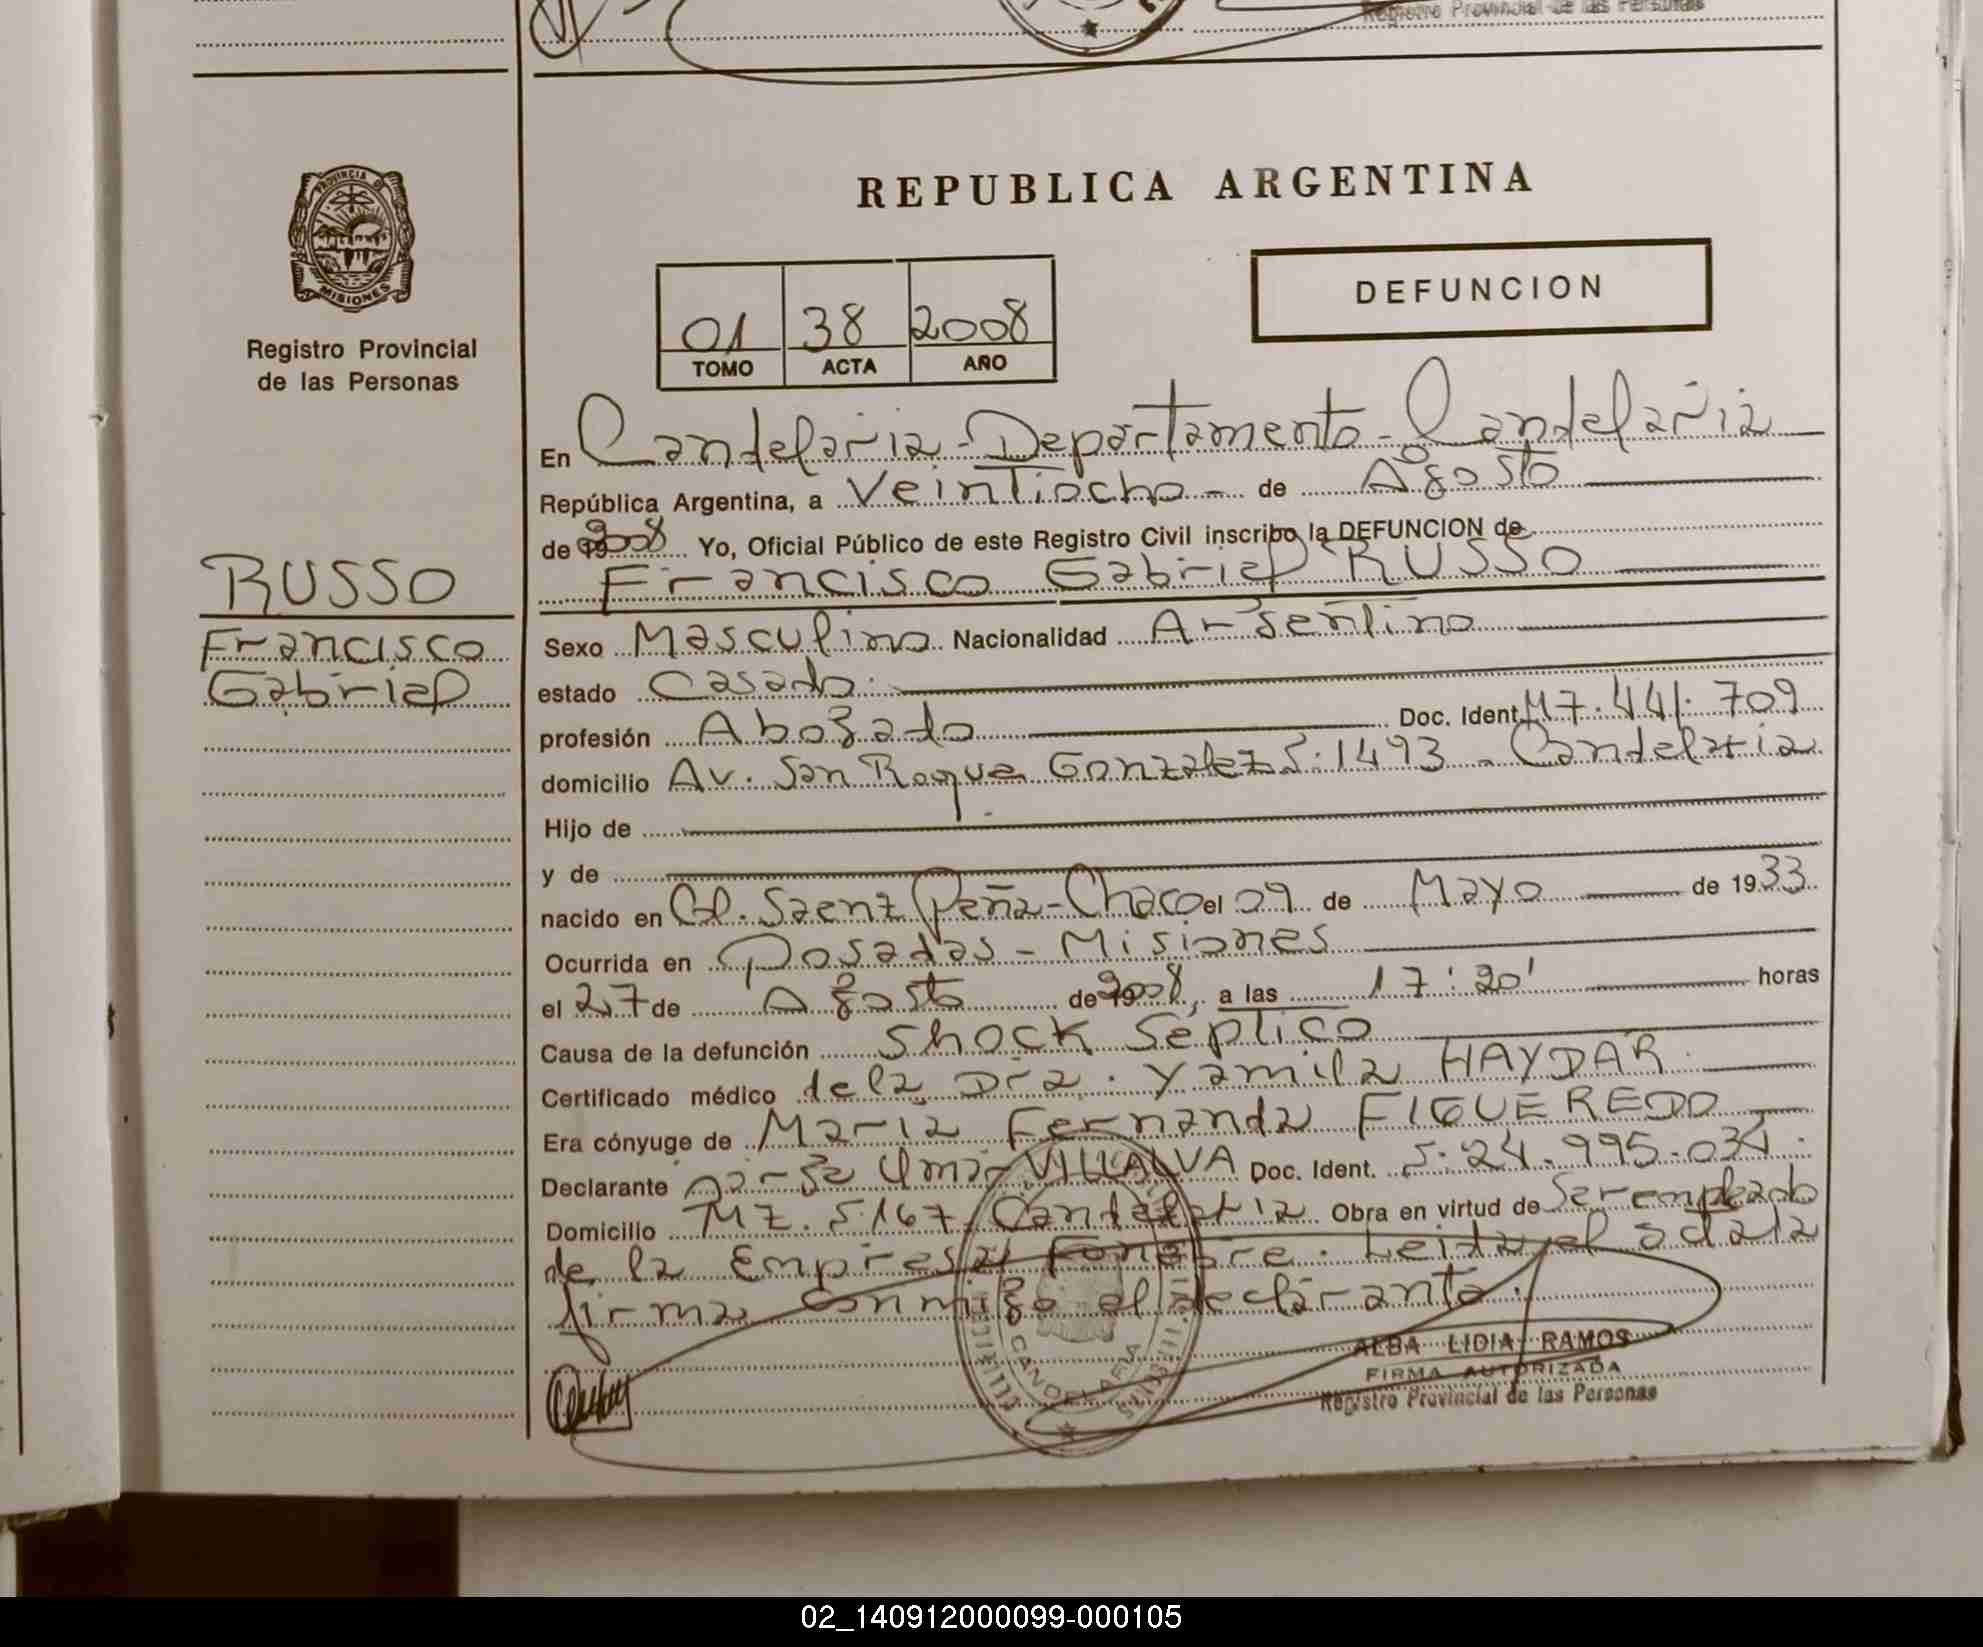 Registro Provincial de las Personas
PROVINCIA DE
MISIONES
Registro Provincial
de las Personas
RUSSO
Francisco
Gabriel
REPUBLICA ARGENTINA
01 38 2008
TOMO ACTA AÑO
DEFUNCION
En Candelaria - Departamento - Candelaria
República Argentina, a Veintiocho - de Agosto
de 2008 Yo, Oficial Público de este Registro Civil inscribo la DEFUNCION de
Francisco Gabriel RUSSO
Sexo Masculino Nacionalidad Argentino
estado Casado
profesión Abogado Doc. Ident. M7.441.709
domicilio Av. San Roque Gonzalez S.1493 - Candelaria
Hijo de
y de
nacido en Cl. Saenz Peña - Chaco el 09 de Mayo de 1933
Ocurrida en Posadas - Misiones
el 27 de Agosto de 2008, a las 17:20' horas
Causa de la defunción Shock Séptico
Certificado médico de la Dra. Yamila HAYDAR
Era cónyuge de Maria Fernanda FIGUEREDO
Declarante Omar VILLALVA Doc. Ident. 24.995.034
Domicilio MZ. S.167, Candelaria Obra en virtud de Ser empleado
de la Empresa Fúnebre. Leida el acta la
firma conmigo el declarante.
CANDELARIA
ALBA LIDIA RAMOS
FIRMA AUTORIZADA
Registro Provincial de las Personas
02_140912000099-000105